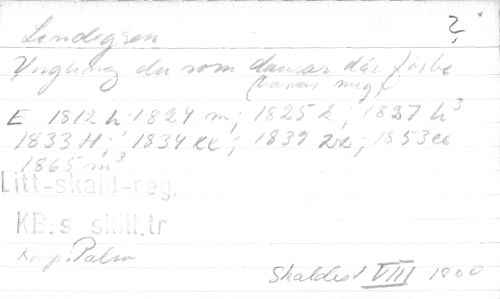 ?
Lindegren
Yngling du som dansar där förbi
(dansar mig)
E 1812 h; 1824 m; 1825 k; 1827 h³
1833 H; 1834 cc; 1839 zz; 1853 cc
1865 m³
Litt-skald-reg.
KB:s skill.tr
Komp: Palm
Skaldest VIII 1800